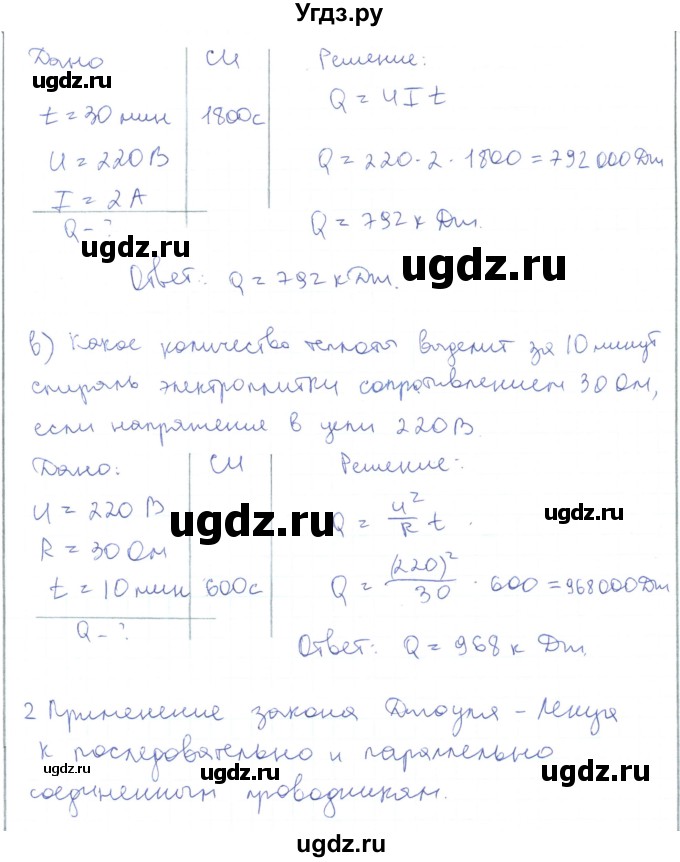 Угдз.ру
Дано СИ Решение:
ugdz.ru
Q = UIt
t = 30 мин 1800с
U = 220 В Q = 220·2·1800 = 792 000 Дж
I = 2 А
Q - ? Q = 792 к Дж.
ugdz.ru ugdz.ru
Ответ: Q = 792 к Дж.
в) Какое количество теплоты выделит за 10 минут
спираль электроплитки сопротивлением 30 Ом,
если напряжение в цепи 220 В.
Дано: СИ Решение:
U = 220 В Q = U²/R t.
ugdz.ru ugdz.ru
R = 30 Ом
t = 10 мин 600с Q = (220)²/30 · 600 = 968000 Дж
Q - ?
Ответ: Q = 968 к Дж.
ugdz.ru
2 Применение закона Джоуля - Ленца
к последовательно и параллельно
ugdz.ru ugdz.ru ugdz.ru
соединенным проводникам.
ugdz.ru